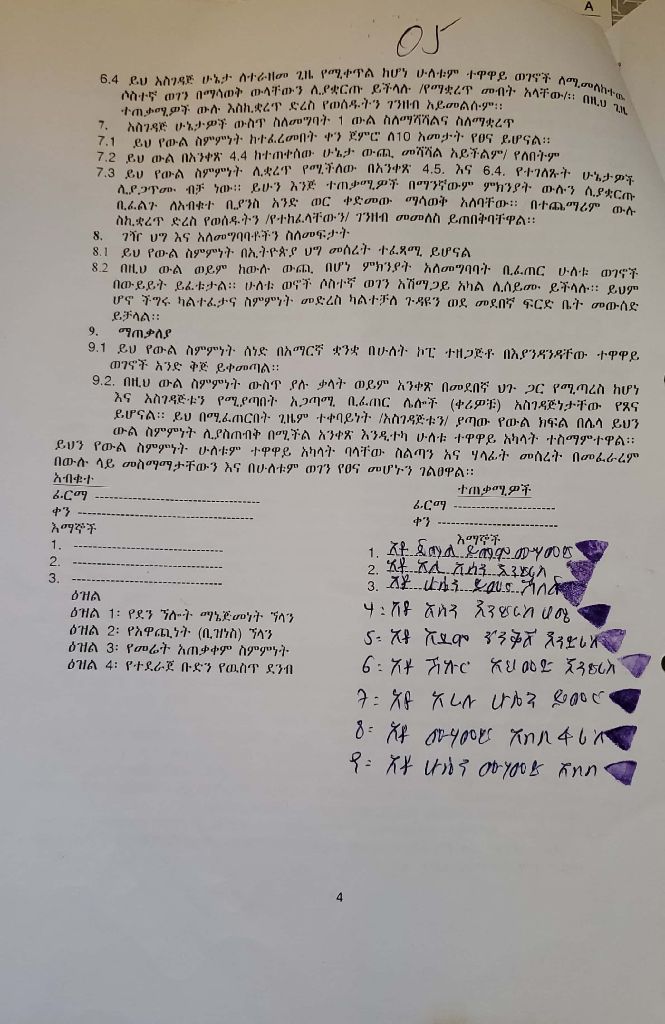 A
05
6.4 ይህ አስገዳጅ ሁኔታ ለተራዘመ ጊዜ የሚቀጥል ከሆነ ሁለቱም ተዋዋይ ወገኖች ለሚመለከተው
ሶስተኛ ወገን በማሳወቅ ውላቸውን ሊያቋርጡ ይችላሉ /የማቋረጥ መብት አላቸው/፡፡ በዚህ ጊዜ
ተጠቃሚዎች ውሉ እስኪቋረጥ ድረስ የወሰዱትን ገንዘብ አይመልሱም፡፡
7. አስገዳጅ ሁኔታዎች ውስጥ ስለመግባት 1 ውል ስለማሻሻልና ስለማቋረጥ
7.1 ይህ የውል ስምምነት ከተፈረመበት ቀን ጀምሮ ለ10 አመታት የፀና ይሆናል፡፡
7.2 ይህ ውል በአንቀጽ 4.4 ከተጠቀሰው ሁኔታ ውጪ መሻሻል አይችልም/ የለበትም
7.3 ይህ የውል ስምምነት ሊቋረጥ የሚችለው በአንቀጽ 4.5. እና 6.4. የተገለጹት ሁኔታዎች
ሲያጋጥሙ ብቻ ነው፡፡ ይሁን እንጅ ተጠቃሚዎች በማንኛውም ምክንያት ውሉን ሲያቋርጡ
ቢፈልጉ ለአብቁተ ቢያንስ አንድ ወር ቀድመው ማሳወቅ አለባቸው፡፡ በተጨማሪም ውሉ
ስኪቋረጥ ድረስ የወሰዱትን /የተከፈላቸውን/ ገንዘብ መመለስ ይጠበቅባቸዋል፡፡
8. ገዥ ህግ እና አለመግባባቶችን ስለመፍታት
8.1 ይህ የውል ስምምነት በኢትዮጵያ ህግ መሰረት ተፈጻሚ ይሆናል
8.2 በዚህ ውል ወይም ከውሉ ውጪ በሆነ ምክንያት አለመግባባት ቢፈጠር ሁለቱ ወገኖች
በውይይት ይፈቱታል፡፡ ሁለቱ ወኖች ሶስተኛ ወገን አሸማጋይ አካል ሊሰይሙ ይችላሉ፡፡ ይህም
ሆኖ ችግሩ ካልተፈታና ስምምነት መድረስ ካልተቻለ ጉዳዩን ወደ መደበኛ ፍርድ ቤት መውሰድ
ይቻላል፡፡
9. ማጠቃለያ
9.1 ይህ የውል ስምምነት ሰነድ በአማርኛ ቋንቋ በሁለት ኮፒ ተዘጋጅቶ በእያንዳንዳቸው ተዋዋይ
ወገኖች አንድ ቅጅ ይቀመጣል፡፡
9.2. በዚህ ውል ስምምነት ውስጥ ያሉ ቃላት ወይም አንቀጽ በመደበኛ ህጉ ጋር የሚጣረስ ከሆነ
እና አስገዳጅቱን የሚያጣበት አጋጣሚ ቢፈጠር ሌሎች (ቀሪዎቹ) አስገዳጅነታቸው የጸና
ይሆናል፡፡ ይህ በሚፈጠርበት ጊዜም ተቀባይነት /አስገዳጅቱን/ ያጣው የውል ክፍል በሌላ ይህን
ውል ስምምነት ሊያስጠብቅ በሚችል አንቀጽ እንዲተካ ሁለቱ ተዋዋይ አካላት ተስማምተዋል፡፡
ይህን የውል ስምምነት ሁለቱም ተዋዋይ አካላት ባላቸው ስልጣን እና ሃላፊት መሰረት በመፈራረም
በውሉ ላይ መስማማታቸውን እና በሁለቱም ወገን የፀና መሆኑን ገልፀዋል፡፡
አብቁተ
ፊርማ
ቀን
እማኞች
1.
2.
3.
ዕዝል
ዕዝል 1፡ የደን ኘሎት ማኔጀመነት ኘላን
ዕዝል 2፡ የአዋጪነት (ቢዝነስ) ኘላን
ዕዝል 3፡ የመሬት አጠቃቀም ስምምነት
ዕዝል 4፡ የተደራጀ ቡድን የዉስጥ ደንብ
ተጠቃሚዎች
ፊርማ
ቀን
እማኞች
1. አቶ
2. አቶ አሊ
3. አቶ ሁሴን
4፡ አቶ
5፡ አቶ
6፡ አቶ
7፡ አቶ ሁሴን
8፡ አቶ
9፡ አቶ ሁሴን
4